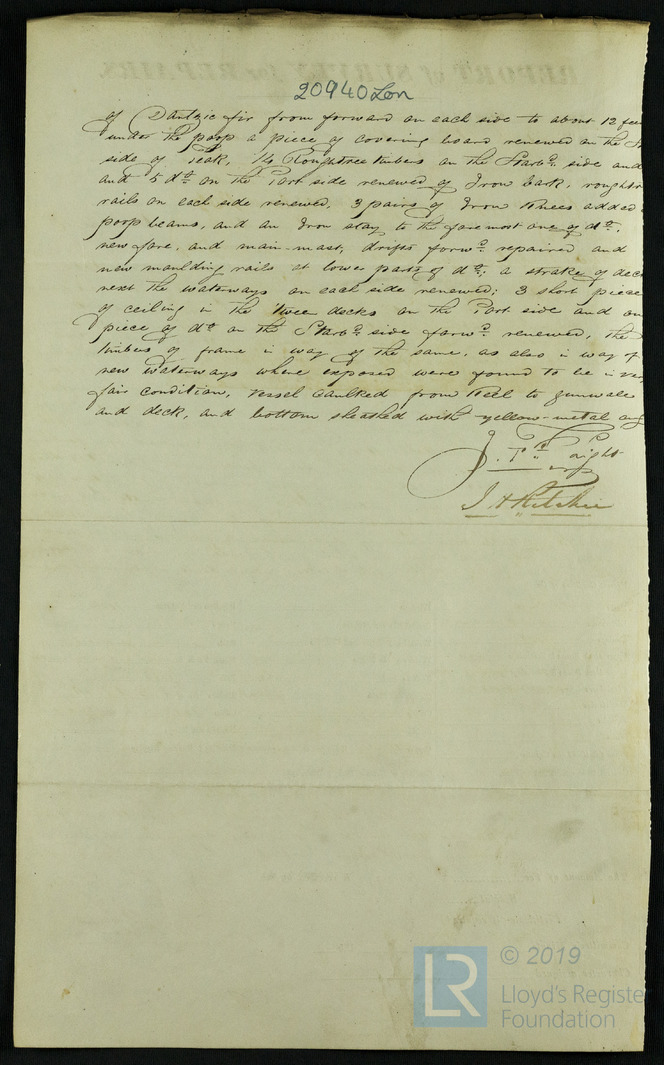 20940 Lon
of Dantzic fir from forward on each side to about 12 fee
under the poop a piece of covering board renewed on the
side of Teak, 14 Roughtree timbers on the Starbd. side and
and 5 do. on the Port side renewed of Iron bark, roughtr
rails on each side renewed, 3 pairs of Iron Knees added
poop beams, and an Iron stay to the foremost one of do.
new fore, and main-mast, drifts forwd. repaired and
new moulding rails at lower parts of do.; a strake of deck
next the waterways on each side renewed; 3 short piece
of ceiling in the 'twee decks on the Port side and on
piece of do. on the Starbd. side forwd. renewed, the
timbers of frame in way of the same, as also in way of
new waterways where exposed were found to be in ver
fair condition, vessel caulked from Keel to gunwale
and deck, and bottom sheathed with yellow-metal
J. H. Ritchie
© 2019
LR
Lloyd's Registe
Foundation
REPORT of SURVEY for REPAIRS